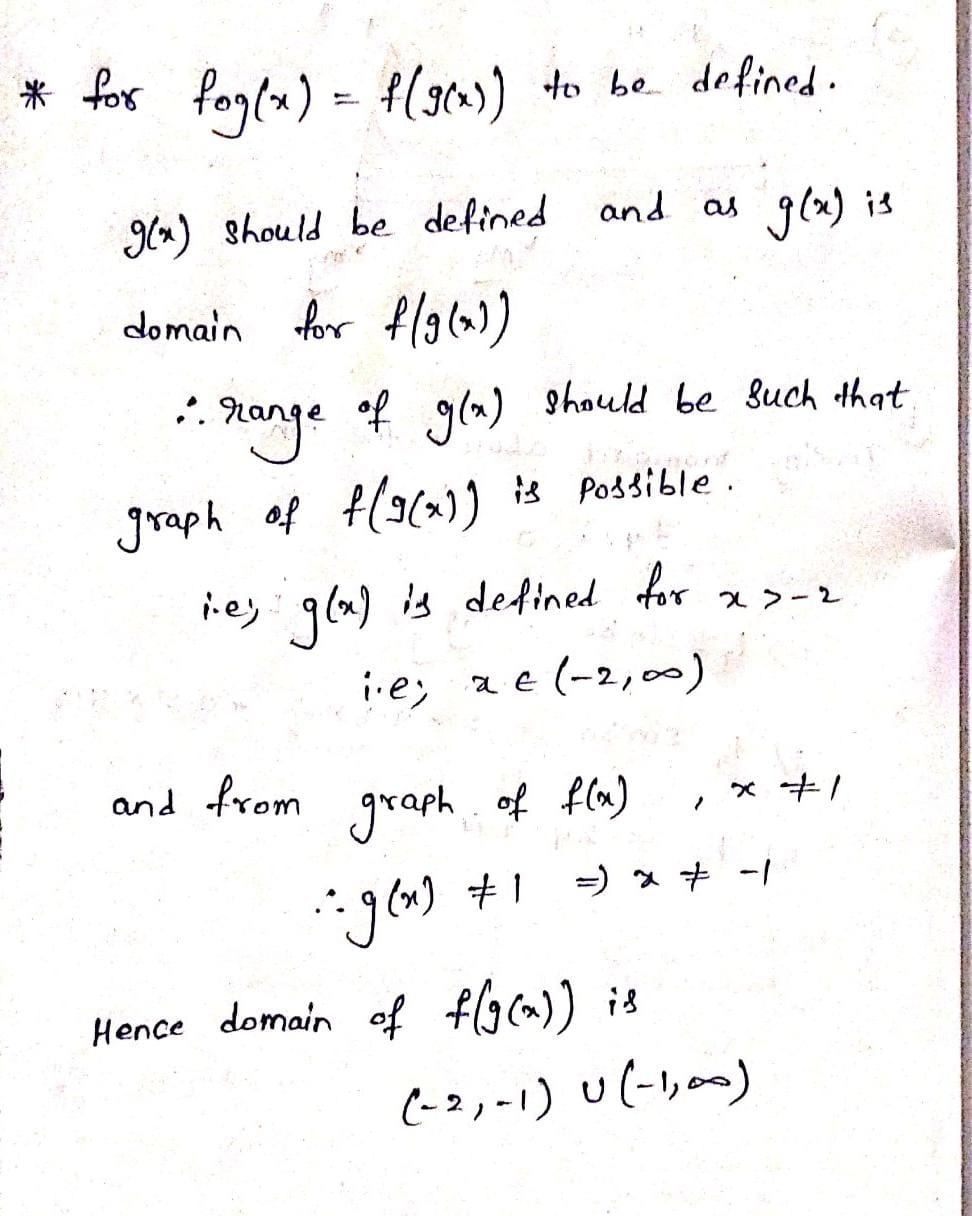 * for fog(x) = f(g(x)) to be defined.
g(x) should be defined and as g(x) is
domain for f(g(x))
∴ range of g(x) should be such that
graph of f(g(x)) is possible.
i.e; g(x) is defined for x > -2
i.e; x ∈ (-2, ∞)
and from graph of f(x) , x ≠ 1
∴ g(x) ≠ 1 ⇒ x ≠ -1
Hence domain of f(g(x)) is
(-2, -1) ∪ (-1, ∞)